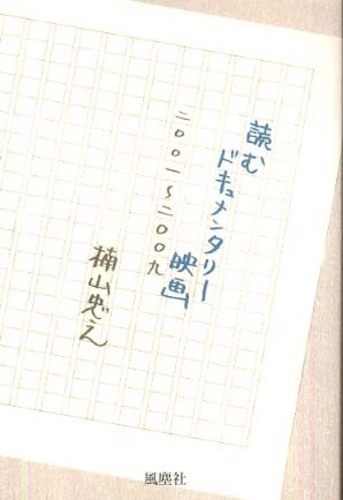 読む
ドキュメンタリー
映画
二〇〇一〜二〇〇九
楠山忠之
風塵社